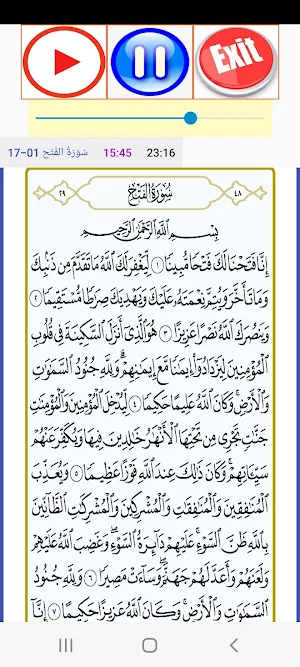 Exit
سُورَةُ الفَتْح 01-17 15:45 23:16
٤٨ سُورَةُ الفَتْحِ ٢٩
بِسْمِ اللَّهِ الرَّحْمَٰنِ الرَّحِيمِ
إِنَّا فَتَحْنَا لَكَ فَتْحًا مُّبِينًا ١ لِّيَغْفِرَ لَكَ اللَّهُ مَا تَقَدَّمَ مِن ذَنۢبِكَ
وَمَا تَأَخَّرَ وَيُتِمَّ نِعْمَتَهُۥ عَلَيْكَ وَيَهْدِيَكَ صِرَٰطًا مُّسْتَقِيمًا ٢
وَيَنصُرَكَ اللَّهُ نَصْرًا عَزِيزًا ٣ هُوَ الَّذِىٓ أَنزَلَ السَّكِينَةَ فِى قُلُوبِ
الْمُؤْمِنِينَ لِيَزْدَادُوٓا۟ إِيمَٰنًا مَّعَ إِيمَٰنِهِمْ ۗ وَلِلَّهِ جُنُودُ السَّمَٰوَٰتِ
وَالْأَرْضِ ۚ وَكَانَ اللَّهُ عَلِيمًا حَكِيمًا ٤ لِّيُدْخِلَ الْمُؤْمِنِينَ وَالْمُؤْمِنَٰتِ
جَنَّٰتٍ تَجْرِى مِن تَحْتِهَا الْأَنْهَٰرُ خَٰلِدِينَ فِيهَا وَيُكَفِّرَ عَنْهُمْ
سَيِّـَٔاتِهِمْ ۚ وَكَانَ ذَٰلِكَ عِندَ اللَّهِ فَوْزًا عَظِيمًا ٥ وَيُعَذِّبَ
الْمُنَٰفِقِينَ وَالْمُنَٰفِقَٰتِ وَالْمُشْرِكِينَ وَالْمُشْرِكَٰتِ الظَّآنِّينَ
بِاللَّهِ ظَنَّ السَّوْءِ ۚ عَلَيْهِمْ دَآئِرَةُ السَّوْءِ ۖ وَغَضِبَ اللَّهُ عَلَيْهِمْ
وَلَعَنَهُمْ وَأَعَدَّ لَهُمْ جَهَنَّمَ ۖ وَسَآءَتْ مَصِيرًا ٦ وَلِلَّهِ جُنُودُ
السَّمَٰوَٰتِ وَالْأَرْضِ ۚ وَكَانَ اللَّهُ عَزِيزًا حَكِيمًا ٧ إِنَّآ